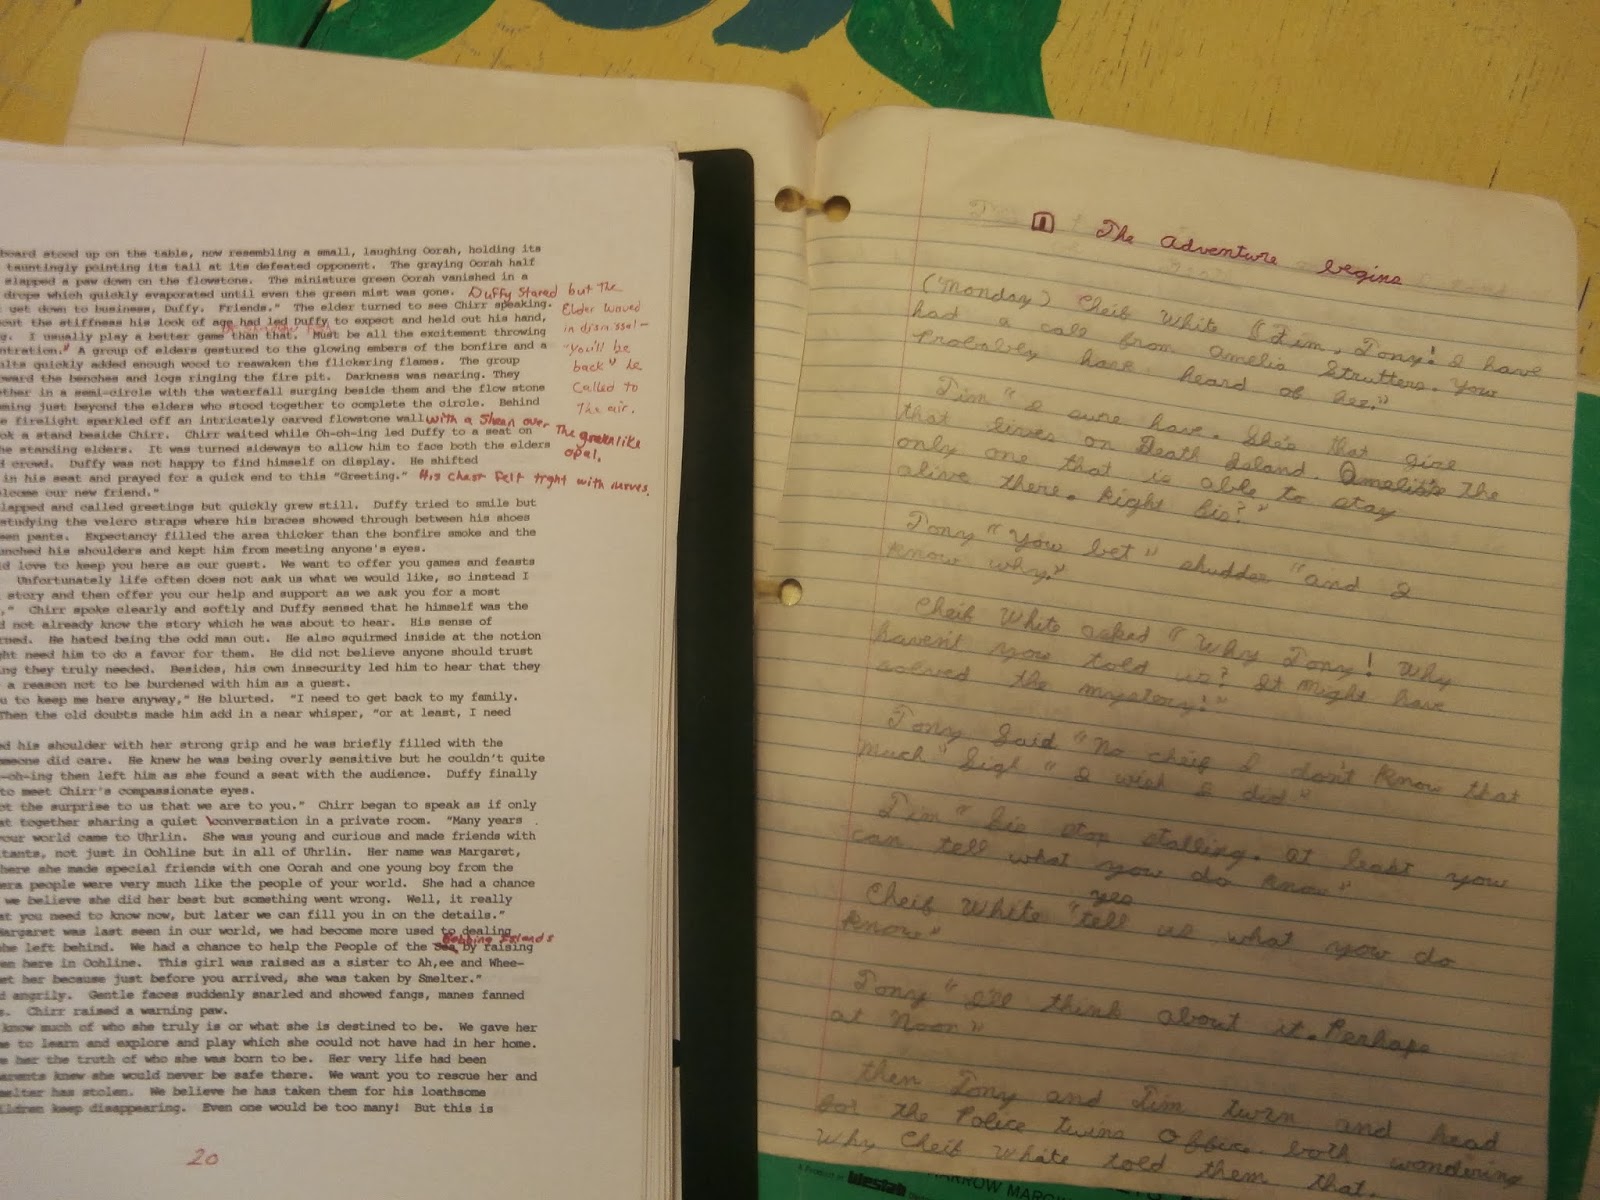 board stood up on the table, now resembling a small, laughing Oorah, holding its
tauntingly pointing its tail at its defeated opponent. The graying Oorah half
slapped a paw down on the flowstone. The miniature green Oorah vanished in a
drops which quickly evaporated until even the green mist was gone. Duffy Stared but the
get down to business, Duffy. Friends." The elder turned to see Chirr speaking. Elder waved
out the stiffness his look of age had led Duffy to expect and held out his hand, in dismissal-
g. I usually play a better game than that. Must be all the excitement throwing "you'll be
ntration." A group of elders gestured to the glowing embers of the bonfire and a back" he
lts quickly added enough wood to reawaken the flickering flames. The group called to
oward the benches and logs ringing the fire pit. Darkness was nearing. They the air.
ether in a semi-circle with the waterfall surging beside them and the flow stone
ming just beyond the elders who stood together to complete the circle. Behind
e firelight sparkled off an intricately carved flowstone wall with a Sheen over
ok a stand beside Chirr. Chirr waited while Oh-oh-ing led Duffy to a seat on The green like
he standing elders. It was turned sideways to allow him to face both the elders opal.
d crowd. Duffy was not happy to find himself on display. He shifted
in his seat and prayed for a quick end to this "Greeting." His chest felt tight with nerves.
elcome our new friend."
lapped and called greetings but quickly grew still. Duffy tried to smile but
studying the velcro straps where his braces showed through between his shoes
een pants. Expectancy filled the area thicker than the bonfire smoke and the
unched his shoulders and kept him from meeting anyone's eyes.
d love to keep you here as our guest. We want to offer you games and feasts
Unfortunately life often does not ask us what we would like, so instead I
story and then offer you our help and support as we ask you for a most
," Chirr spoke clearly and softly and Duffy sensed that he himself was the
d not already know the story which he was about to hear. His sense of
rned. He hated being the odd man out. He also squirmed inside at the notion
ght need him to do a favor for them. He did not believe anyone should trust
ing they truly needed. Besides, his own insecurity led him to hear that they
a reason not to be burdened with him as a guest.
u to keep me here anyway," He blurted. "I need to get back to my family.
Then the old doubts made him add in a near whisper, "or at least, I need
ed his shoulder with her strong grip and he was briefly filled with the
meone did care. He knew he was being overly sensitive but he couldn't quite
-oh-ing then left him as she found a seat with the audience. Duffy finally
to meet Chirr's compassionate eyes.
ot the surprise to us that we are to you." Chirr began to speak as if only
at together sharing a quiet conversation in a private room. "Many years
your world came to Uhrlin. She was young and curious and made friends with
tants, not just in Oohline but in all of Uhrlin. Her name was Margaret,
here she made special friends with one Oorah and one young boy from the
era people were very much like the people of your world. She had a chance
we believe she did her best but something went wrong. Well, it really
at you need to know now, but later we can fill you in on the details."
Margaret was last seen in our world, we had become more used to dealing
he left behind. We had a chance to help the People of the Sea Islands by raising
en here in Oohline. This girl was raised as a sister to Ah,ee and Whee-
et her because just before you arrived, she was taken by Smelter."
d angrily. Gentle faces suddenly snarled and showed fangs, manes fanned
s. Chirr raised a warning paw.
know much of who she truly is or what she is destined to be. We gave her
e to learn and explore and play which she could not have had in her home.
e her the truth of who she was born to be. Her very life had been
arents knew she would never be safe there. We want you to rescue her and
melter has stolen. We believe he has taken them for his loathsome
ildren keep disappearing. Even one would be too many! But this is
20
The Adventure begins
(Monday) Cheif White "Tim, Tony! I have
had a call from Amelia Strutters. You
Probably have heard of her."
Tim "I sure have. She's that girl
that lives on Death Island. Amelia's The
only one that is able to stay
alive there. Right Sis?"
Tony "You bet" shudder "and I
know why."
Cheif White asked "Why Tony! Why
haven't you told us? It might have
solved the mystery!"
Tony Said "No cheif I don't know that
much" Sigh "I wish I did"
Tim "Sis stop stalling. at least you
can tell what you do know"
Cheif White "yes tell us what you do
know"
Tony "I'll think about it. Perhaps
at Noon"
then Tony and Tim turn and head
for the Police twins office both wondering
Why Cheif White told them that.
Westab
NARROW MARGI